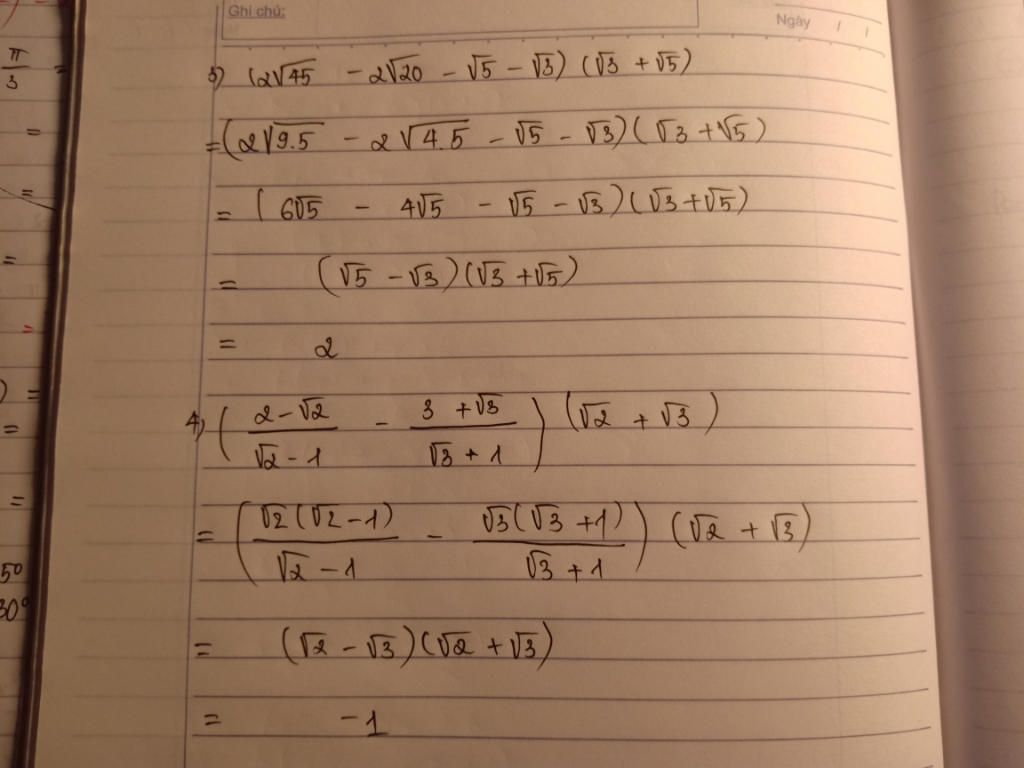 Ghi chú:
Ngày / /
3) (2√45 - 2√20 - √5 - √3) (√3 + √5)
= (2√9.5 - 2√4.5 - √5 - √3) (√3 + √5)
= (6√5 - 4√5 - √5 - √3) (√3 + √5)
= (√5 - √3) (√3 + √5)
= 2
4) ( (2 - √2)/(√2 - 1) - (3 + √3)/(√3 + 1) ) (√2 + √3)
= ( √2(√2 - 1)/(√2 - 1) - √3(√3 + 1)/(√3 + 1) ) (√2 + √3)
= (√2 - √3) (√2 + √3)
= -1
π/3 =
=
=
=
=
) =
=
=
5°
30°